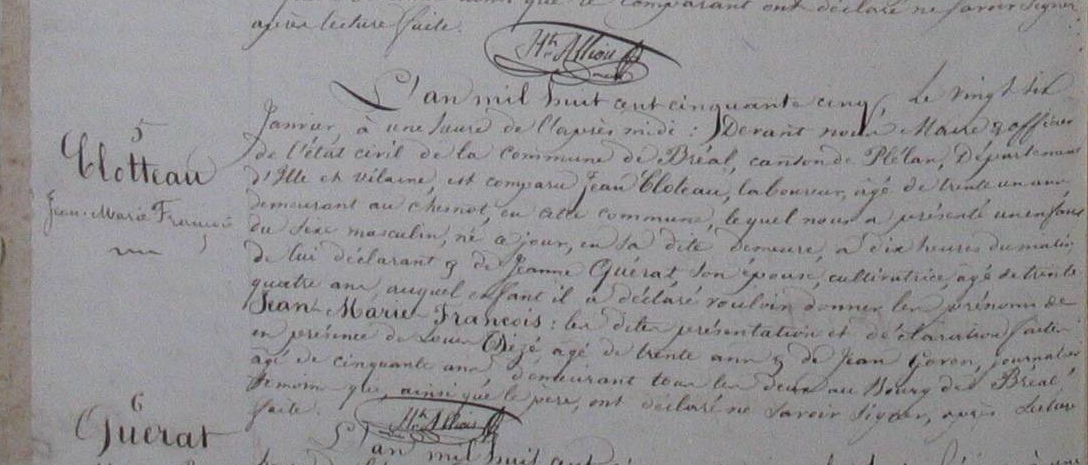 que le comparant ont déclaré ne savoir signer
après lecture faite.
Hte Allion
L'an mil huit cent cinquante cinq, Le vingt six
5
Clotteau
Jean-Marie François
Janvier, à une heure de l'après midi : Devant nous Maire & officier
de l'état civil de la commune de Bréal, canton de Plélan, Département
d'Ille et vilaine, est comparu Jean Cloteau, laboureur, âgé de trente un ans,
demeurant au chesnot, en cette commune, lequel nous a présenté un enfant
du sexe masculin, né ce jour, en sa dite demeure, à dix heures du matin
de lui déclarant & de Jeanne Guérat, son épouse, cultivatrice, agé de trente
quatre ans, auquel enfant il a déclaré vouloir donner les prénoms de
Jean-Marie François : les dites présentation et déclaration faites
en présence de Louis Dizé agé de trente ans & de Jean Goron, journalier
agé de cinquante ans demeurant tous les deux au Bourg de Bréal,
témoins que, ainsi que le père, ont déclaré ne savoir signer, après lecture
faite.
Hte Allion
6
Guerat
L'an mil huit cent